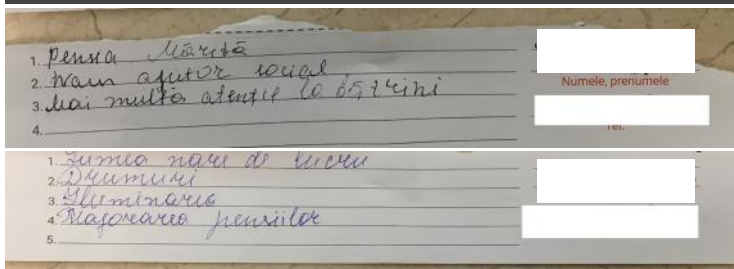 1. Pensia Mărită
2. ajutor social
3. Mai multă atenție la bătrini
4.
Numele, prenumele
Tel.
1. Lumea nare de lucru
2. Drumuri
3. Iluminarea
4. Majorarea pensiilor
5.